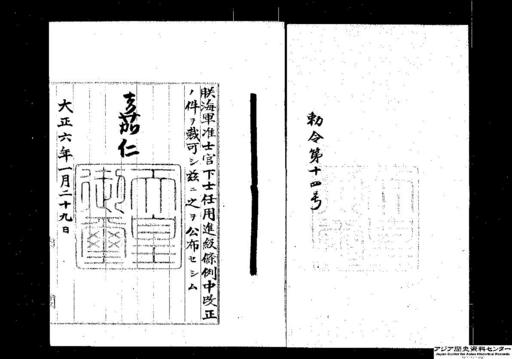 勅令第十四号
朕海軍准士官下士任用進級條例中改正
ノ件ヲ裁可シ茲ニ之ヲ公布セシム
嘉仁
天皇御璽
大正六年一月二十九日
アジア歴史資料センター
Japan Center for Asian Historical Records